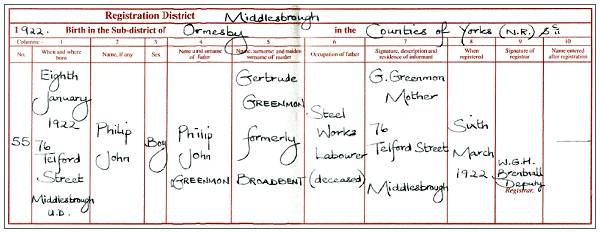 Registration District Middlesbrough
1922. Birth in the Sub-district of Ormesby in the Counties of Yorks (N.R.) &c
Columns:- 1 2 3 4 5 6 7 8 9 10
No. When and where born Name, if any Sex Name and surname of father Name, surname and maiden surname of mother Occupation of father Signature, description and residence of informant When registered Signature of registrar Name entered after registration
55
Eighth
January
1922
76
Telford
Street
Middlesbrough
U.D.
Philip
John
Boy
Philip
John
GREENMON
Gertrude
GREENMON
formerly
BROADBENT
Steel
Works
Labourer
(deceased)
G. Greenmon
Mother
76
Telford Street
Middlesbrough
Sixth
March
1922
W.G.H.
Brentnall
Deputy
Registrar.